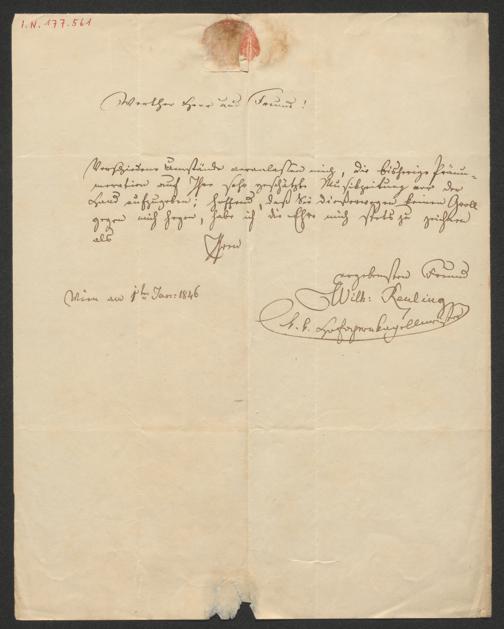 I.N. 177.561
Werther Herr und Freund!
Verschiedene Umstände veranlassen mich, die bisherige Pränu-
meration auf Ihre sehr geschätzte Musikzeitung vor der
Hand aufzugeben; hoffend, daß Sie dießerwegen keinen Groll
gegen mich hegen, habe ich die Ehre mich stets zu zeichnen
als
Ihren
ergebensten Freund
Wien am 1ten Jan: 1846
Wilh: Reuling
k. k. Hofopernkapellmeister